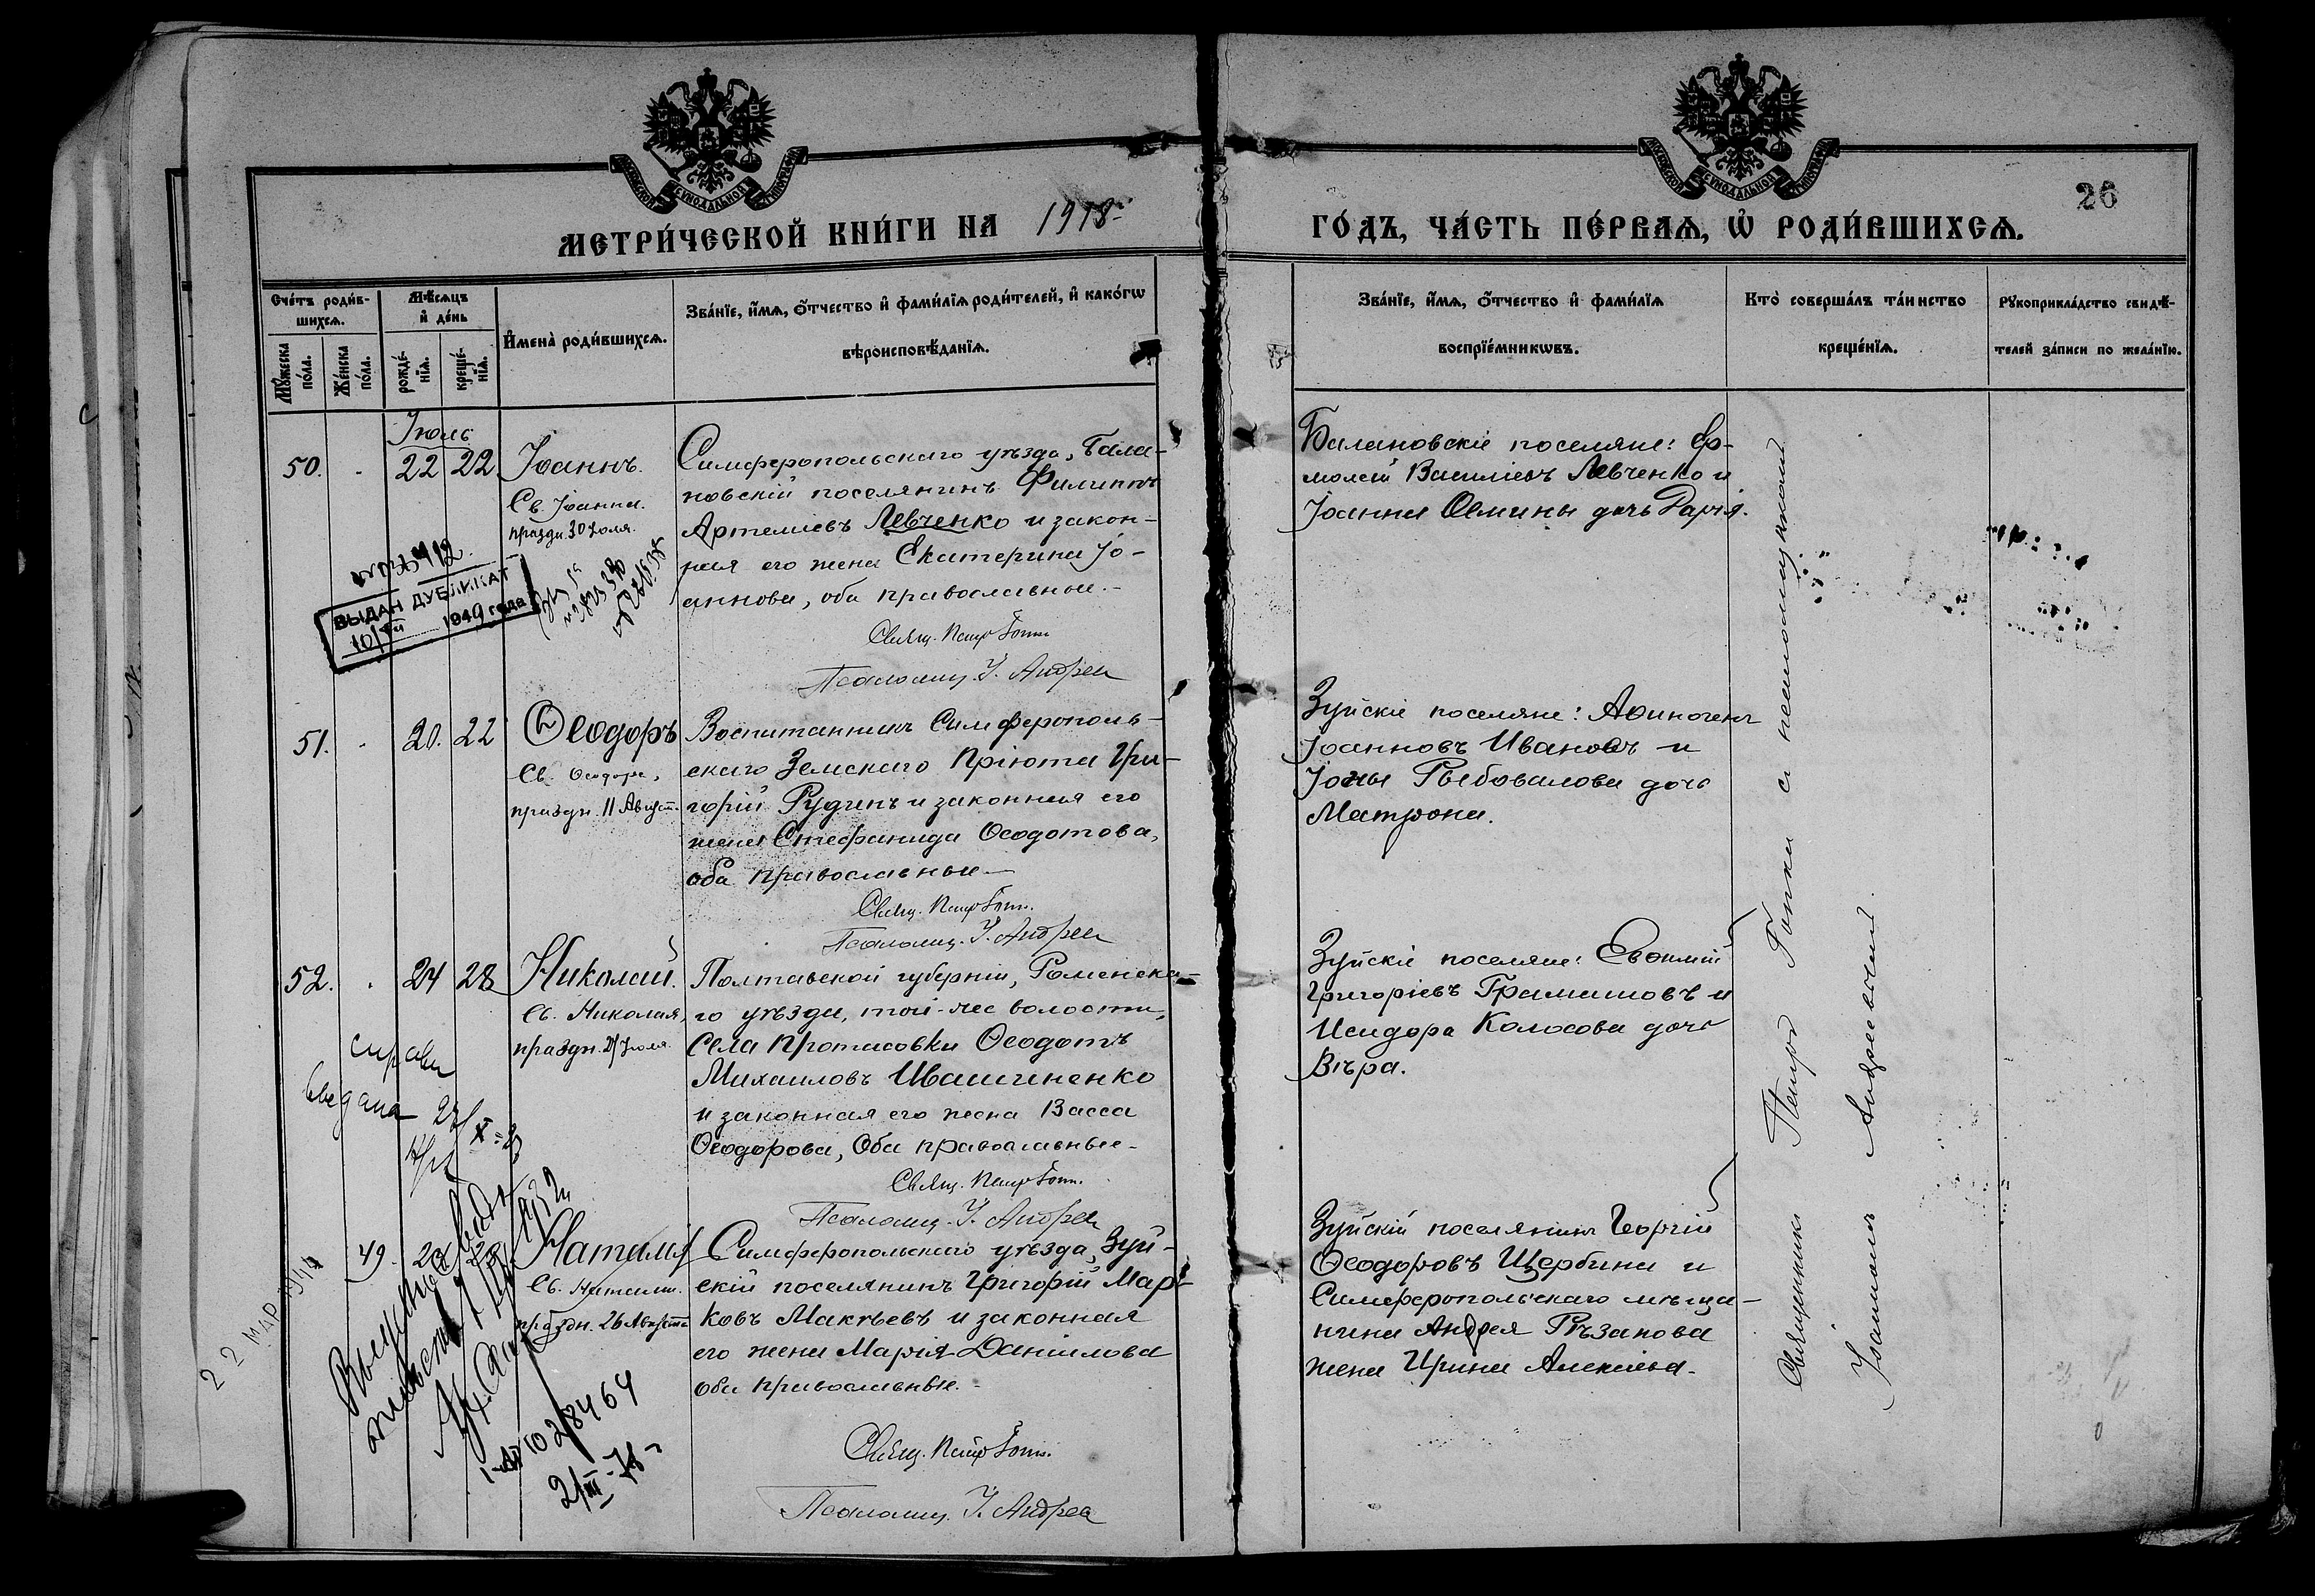 МЕТРИ́ЧЕСКОЙ КНИ́ГИ НА 1918
ГО́ДЪ, ЧА́СТЬ ПЕ́РВАѦ, Ѽ РОДИ́ВШИХСѦ.
26
Сче́тъ роди́в-
шихсѧ.
Мꙋ́жеска
по́ла.
Же́нска
по́ла.
Мѣ́сѧцъ
и҆ де́нь
рожде́-
нїѧ.
креще́-
нїѧ.
И҆мена̀ роди́вшихсѧ.
Зва́нїе, и҆́мѧ, ѻ҆́тчество и҆ фами́лїѧ роди́телей, и҆ како́гѡ
вѣроисповѣ́данїѧ.
Зва́нїе, и҆́мѧ, ѻ҆́тчество и҆ фами́лїѧ
воспрїе́мникѡвъ.
Кто̀ соверша́лъ та́инство
креще́нїѧ.
Рꙋкоприкла́дство свидѣ́-
телей за́писи по жела́нїю.
Іюль
50. 22 22 Іоаннъ.
Св. Іоанна.
праздн. 30 Іюля.
Симферопольскаго уѣзда, Бала-
новскій поселянинъ Филиппъ
Артемиевъ Левченко и закон-
ная его жена Екатерина Іо-
аннова, оба православные.-
Свящ. Петръ
Псаломщ. І. Андрее
Балановскіе поселяне: Ер-
молай Василіевъ Левченко и
Іоанна дочь Дарія.
ВЫДАН ДУБЛИКАТ
10/VII 1949 года
51. 20. 22 Ѳеодоръ
Св. Ѳеодора,
праздн. 11 Август.
Воспитанникъ Симферополь-
скаго Земскаго Пріюта Гри-
горій Рудинъ и законная его
жена Стефанида Ѳеодотова,
оба православные.-
Свящ. Петръ
Псаломщ. І. Андрее
Зуйскіе поселяне: Аѳиногенъ
Іоанновъ Ивановъ и
Іоны Рыбовалова дочь
Матрона.
52. 24 28 Николай.
Св. Николая,
праздн. 27 Іюля.
Полтавской губерніи, Роменска-
го уѣзда, той-же волости,
Села Протасовки Ѳеодотъ
Михаиловъ Ивашиненко
и законная его жена Васса
Ѳеодорова, Оба православные-
Свящ. Петръ
Псаломщ. І. Андрее
Зуйскіе поселяне: Евѳимій
Григоріевъ Граматовъ и
Исидора Колосова дочь
Вѣра.
49. Наталія
Св. Наталіи.
праздн. 26 Августа
Симферопольскаго уѣзда, Зуй-
скій поселянинъ Григорій Мар-
ковъ Макѣевъ и законная
его жена Марія Даніилова
оба православные.-
Свящ. Петръ
Псаломщ. І. Андрее
Зуйскій поселянинъ Георгій
Ѳеодоровъ Щербина и
Симферопольскаго мѣща-
нина Андрея Рѣзанова
жена Ирина Алексіева-
Священникъ Петръ с псаломщикомъ
Іоанномъ Андреевскимъ.